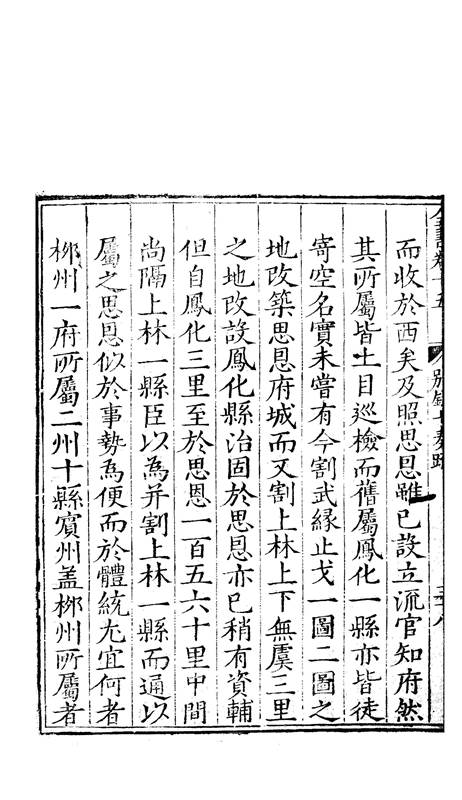 全書卷十五 別錄七奏疏
而收於西矣及照思恩雖已設立流官知府然
其所屬皆土目巡檢而舊屬鳳化一縣亦皆徒
寄空名實未嘗有今割武緣止戈一圖二圖之
地改築思恩府城而又割上林上下無虞三里
之地改設鳳化縣治固於思恩亦已稍有資輔
但自鳳化三里至於思恩一百五六十里中間
尚隔上林一縣臣以為并割上林一縣而通以
屬之思恩似於事勢為便而於體統尤宜何者
柳州一府所屬二州十縣賓州盖柳州所屬者